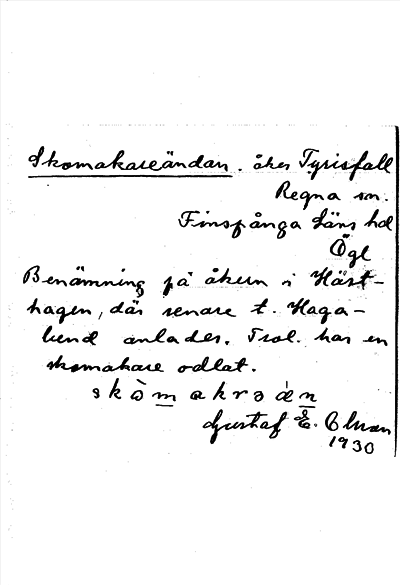 Skomakareändan. åker Tyrisfall
Regna sn.
Finspånga läns hd
Ögl
Benämning på åkern i Häst-
hagen, där senare t. Haga-
lund anlades. Trol. har en
skomakare odlat.
Gustaf E.
1930